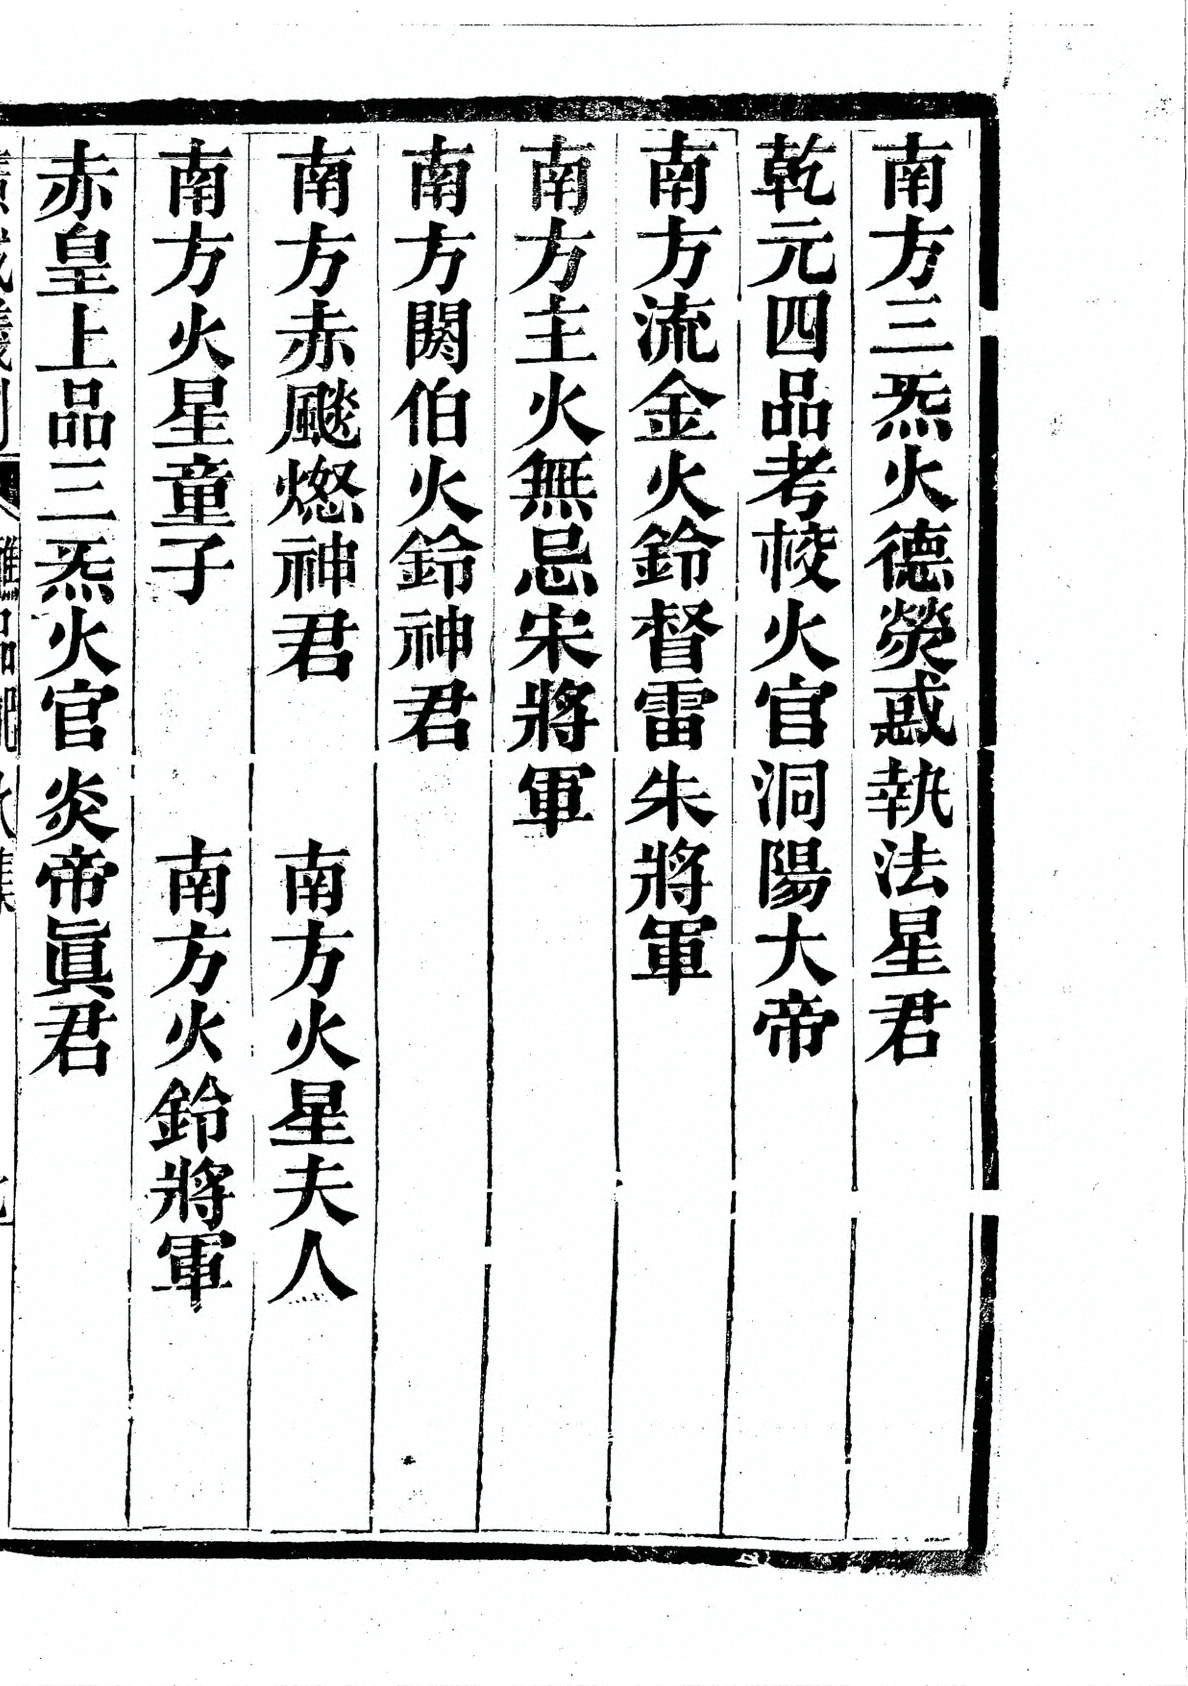 南方三炁火德熒惑執法星君
乾元四品考校火官洞陽大帝
南方流金火鈴督雷朱將軍
南方主火無忌宋將軍
南方閼伯火鈴神君
南方赤飈𤐫神君　南方火星夫人
南方火星童子　南方火鈴將軍
赤皇上品三炁火官炎帝眞君